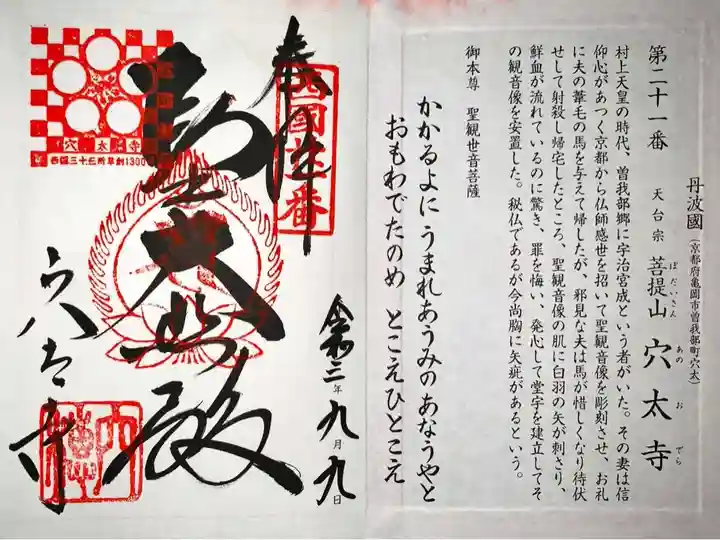 丹波國(京都府亀岡市曽我部町穴太)
第二十一番 天台宗 菩提山 穴太寺
ぼだいさん あのおでら
村上天皇の時代、曽我部郷に宇治宮成という者がいた。その妻は信
仰心があつく京都から仏師感世を招いて聖観音像を彫刻させ、お礼
に夫の葦毛の馬を与えて帰したが、邪見な夫は馬が惜しくなり待伏
せして射殺し帰宅したところ、聖観音像の肌に白羽の矢が刺さり、
鮮血が流れているのに驚き、罪を悔い、発心して堂宇を建立してそ
の観音像を安置した。秘仏であるが今尚胸に矢疵があるという。
御本尊 聖観世音菩薩
かかるよに うまれあうみの あなうやと
おもわでたのめ とこえひとこえ
奉拝
西国廿一番
令和三年九月九日
聖大悲殿
穴太寺
穴太寺
西国三十三所草創1300年